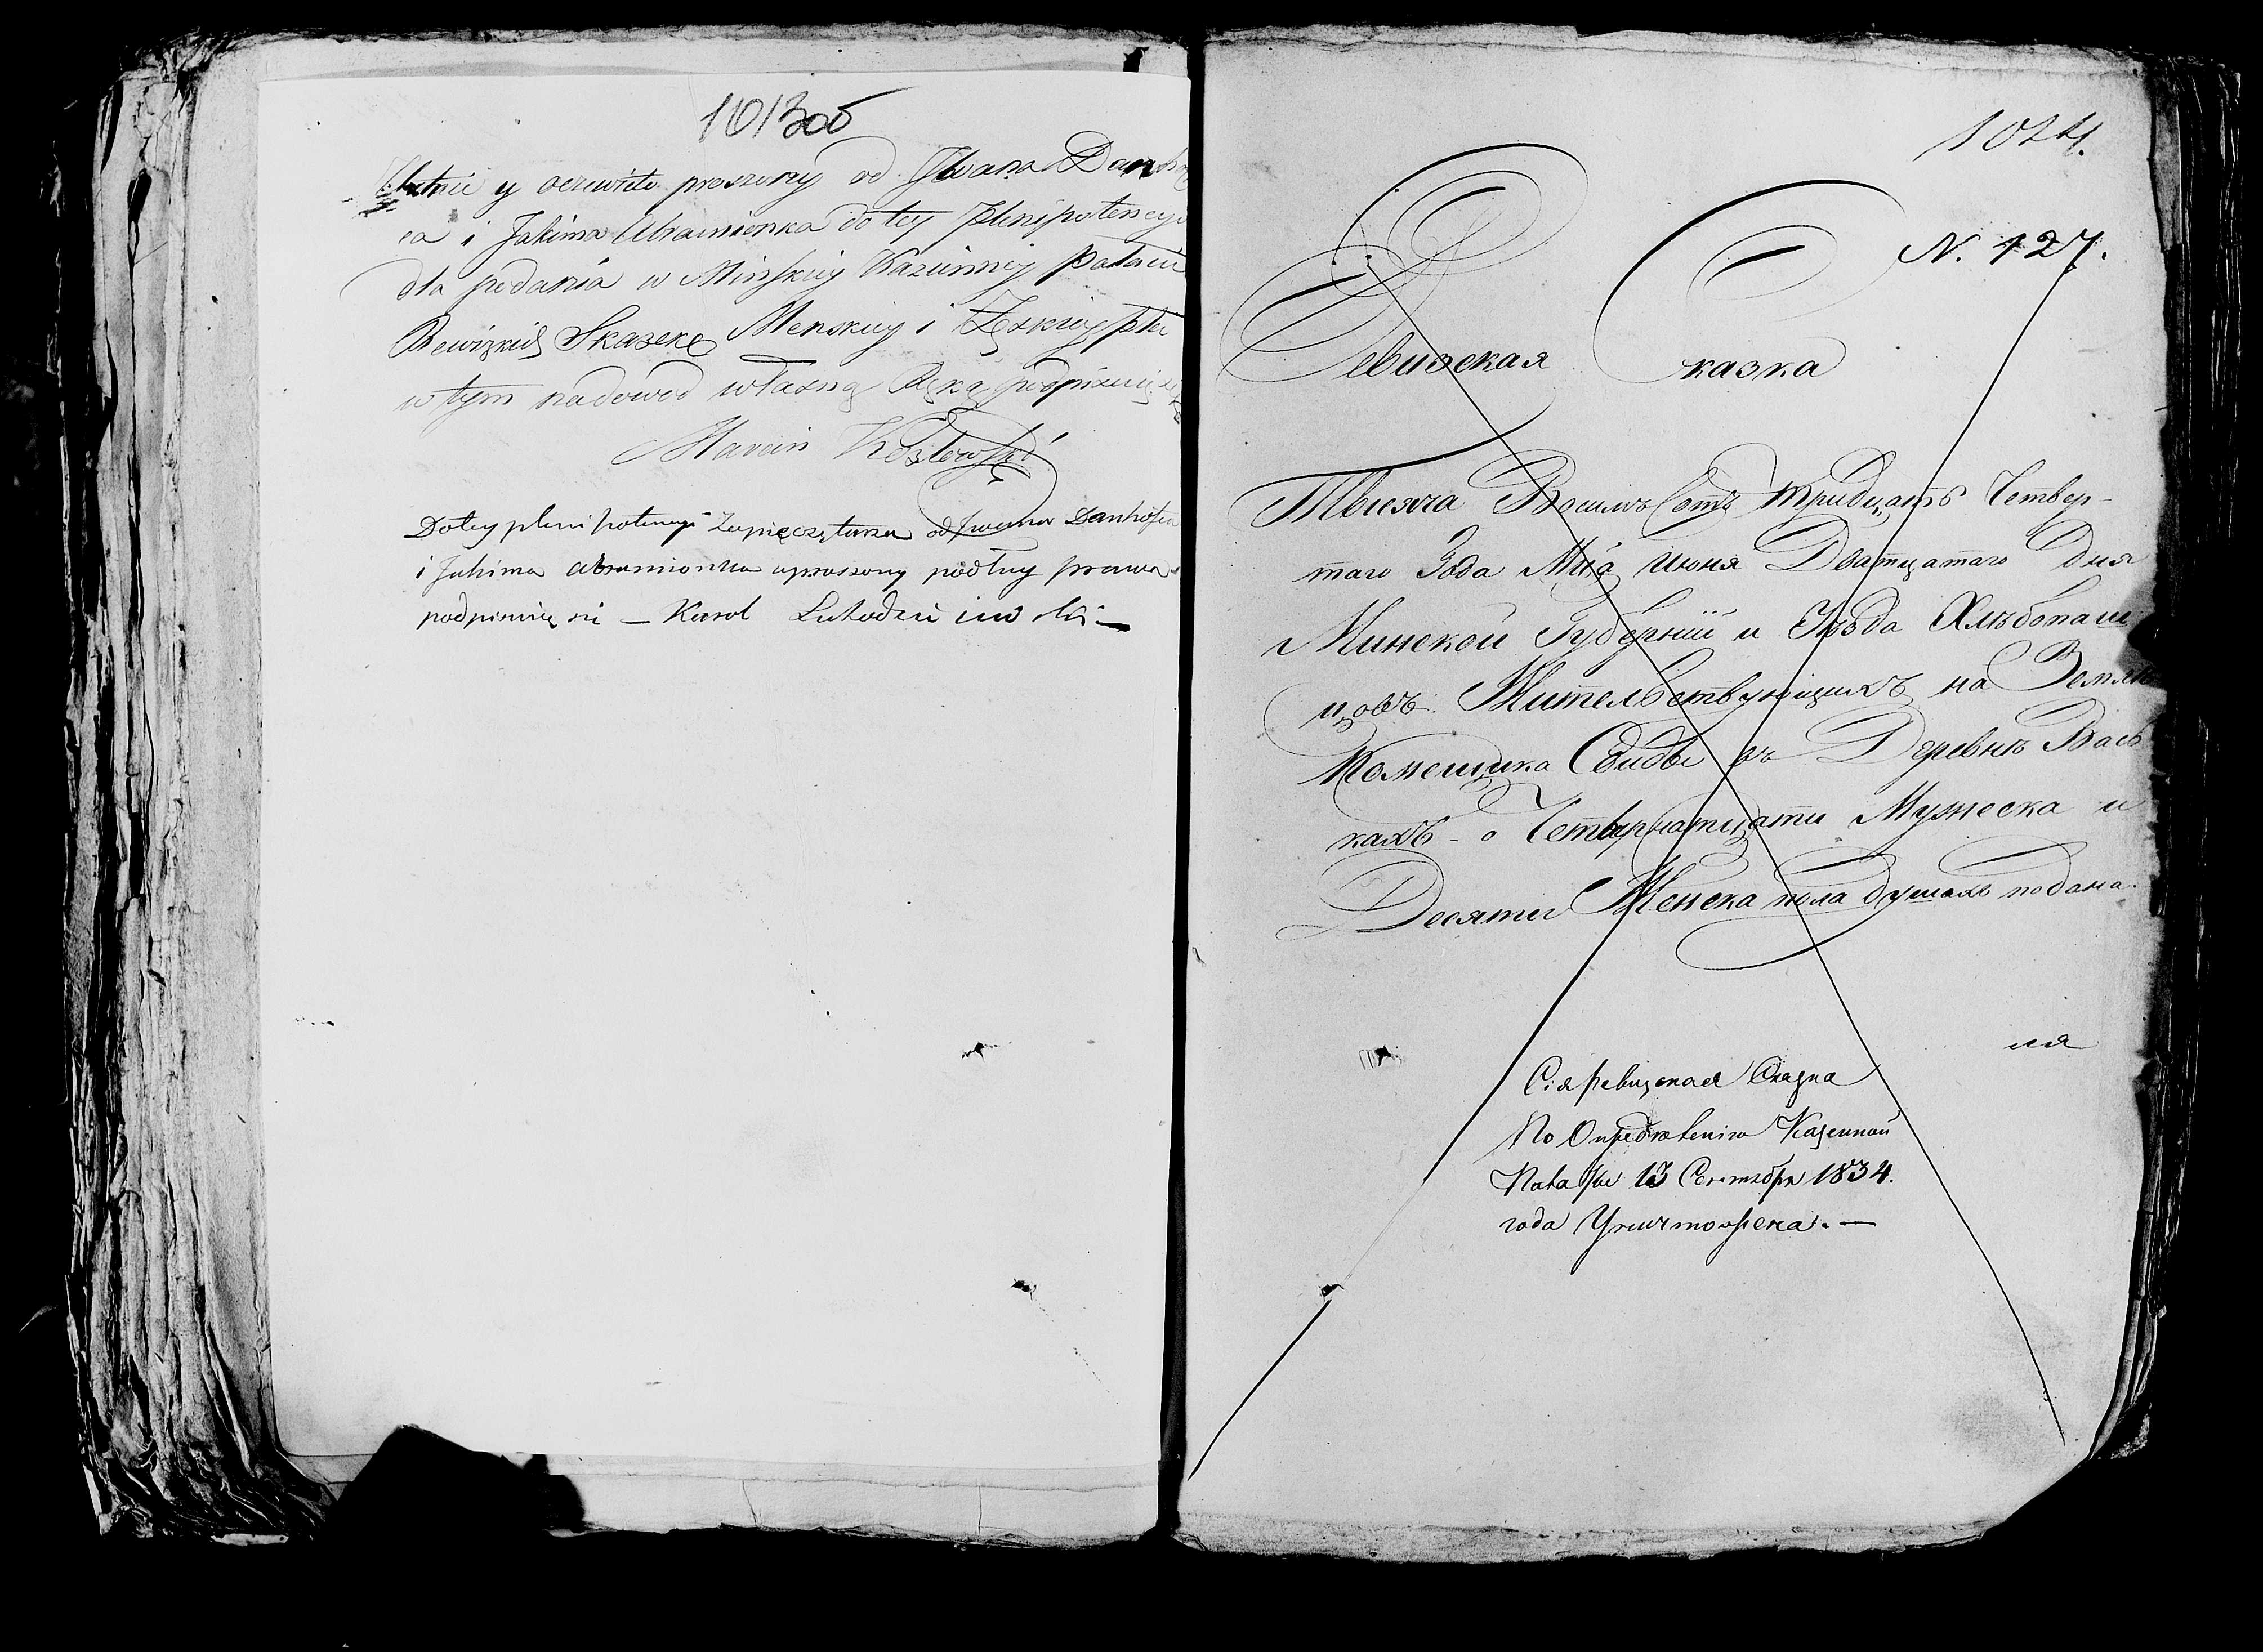 1013об
Ustnie y oczewisto proszony od Jwana Danko
ca i Jakima Abramienka do tey plenipotencyi
dla podania w Minskiey Kazionney Patacie
Rewizkich Skazek Menskiey i Żeskiey płci
w tym na dowod własną Ręką podpisuię się
Marcin Kozłowski
Do tey plenipotencyi Zapieczętowa od Jwana
i Jakima Abramionka uproszony podług prawa
podpisuię się — Karol
1024.
N. 427.
Ревизская Сказка
Тысяча Восимь Сотъ тридцатъ Четвер-
таго Года Мца Июня Дватцатаго Дня
Минской Губернии и Уезда Хлѣбопаш
цовъ Жительствующихъ на Земли
Помещика Свиды въ Деревнѣ Вась
кахъ - о Четырнатцати Мужеска и
Десяти Женска пола душахъ подана.
ия
Сія Ревизская Сказка
По Определенію Казенной
Палаты 13 Сентября 1834.
года Уничтожена. —